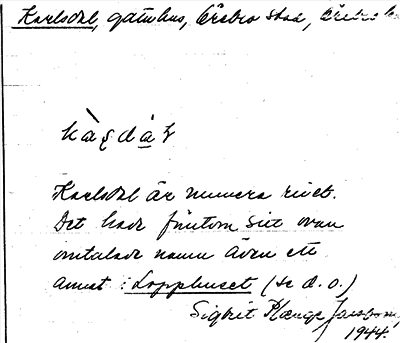 Karlsdal, gathus, Örebro stad, Örebro
Karlsdal är numera rivet.
Det hade förutom sitt ovan
omtalade namn även ett
annat: Lopphuset (se d. o.)
Sigbrit Plænge Jacobson
1944.